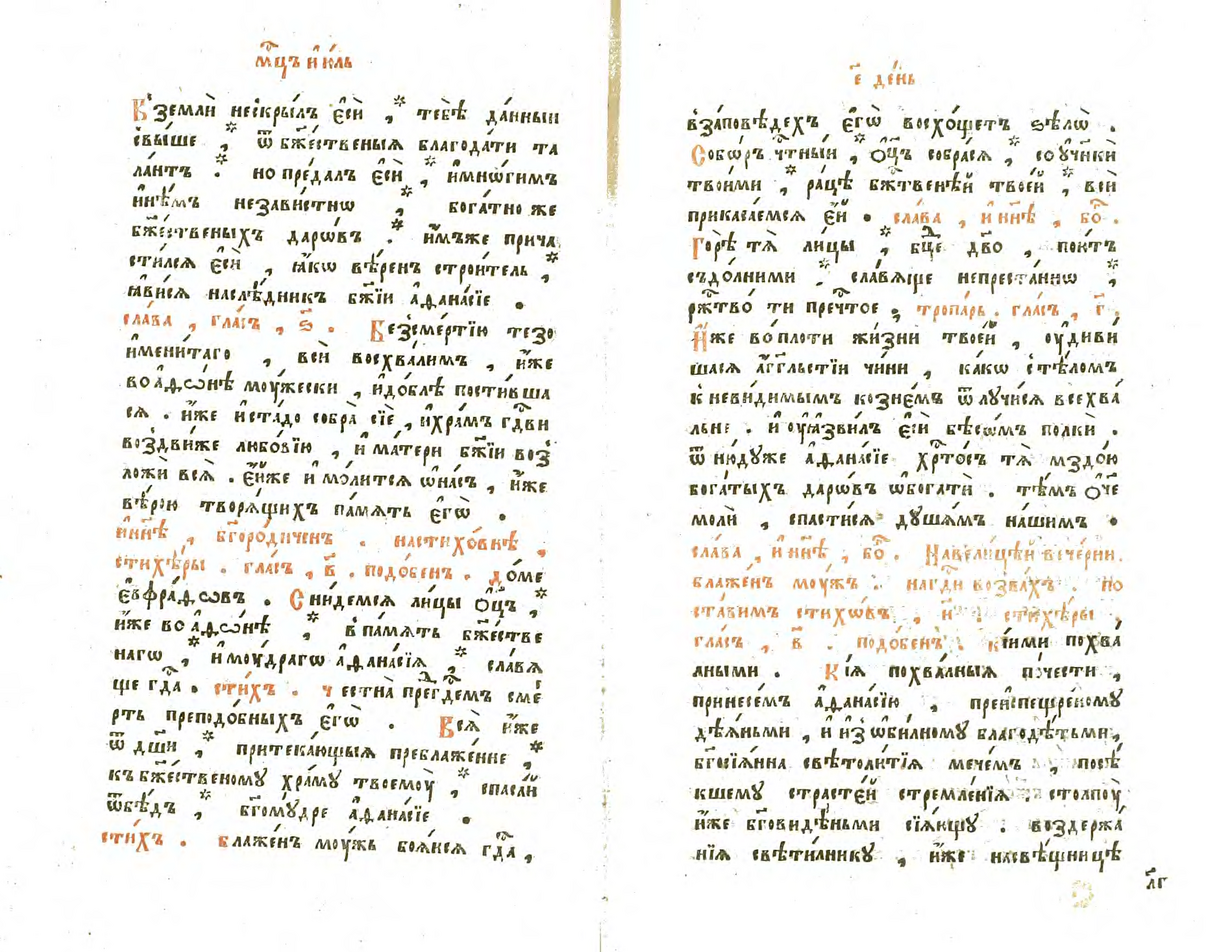 мц҃ъ и҆ю́ль
Въземлѝ нескры́лъ є҆сѝ , * тебѣ̀ да́нныи
свы́ше , * ѿ бж҃е́ственыѧ благода́ти та
ла́нтъ . * но пре́далъ є҆сѝ , * и҆мнѡ́гимъ
и҆нѣ́мъ незави́стнѡ , * бога́тно же
бж҃е́ственыхъ дарѡ́въ . * и҆́мъже прича
сти́лсѧ є҆сѝ , ꙗ҆́кѡ вѣ́ренъ строи́тель , *
ꙗ҆ви́сѧ наслѣ́дникъ бж҃їи а҆ѳана́сїе .
сла́ва , гла́съ , ѕ҃ . Безсме́ртїю тезо
имени́таго , всѝ восхва́лимъ , и҆́же
во а҆ѳѡ́нѣ мꙋ́жески , и҆до́блѣ пости́вша
сѧ . и҆́же и҆ ста́до собра̀ сїѐ , и҆хра́мъ гд҃ви
воздви́же любо́вїю , и҆ ма́тери бж҃їи воз
ложѝ всѧ̀ . є҆́йже и҆ мо́литсѧ ѡ҆на́съ , и҆́же
вѣ́рою творѧ́щихъ па́мѧть є҆гѡ̀ .
и҆ нн҃ѣ , бг҃оро́диченъ . настихо́внѣ ,
стихѣ́ры . гла́съ , в҃ . подо́бенъ . до́ме
є҆ѵфра́ѳовъ . Сни́демсѧ ли́цы ѻ҆ц҃ъ , *
и҆́же во а҆ѳѡ́нѣ , * в па́мѧть бж҃е́стве
нагѡ , * и҆ мꙋ́драгѡ а҆ѳана́сїѧ , * сла́вѧ
ще гд҃а . сти́хъ . честна̀ пред̾гд҃емъ сме
рть преподо́бныхъ є҆гѡ̀ . Всѧ̀ и҆́же
ѿ дш҃и , * притека́ющыѧ преблаже́нне , *
къ бж҃е́ственому хра́му твоемꙋ̀ , * спаса́й
ѿбѣ́дъ , * бг҃ому́дре а҆ѳана́сїе .
сти́хъ . блаже́нъ мꙋ́жь боѧ́йсѧ гд҃а ,
є҃ де́нь
взаповѣ́дехъ є҆гѡ̀ восхо́щетъ ѕѣлѡ̀ .
Собѡ́ръ чтны́й , * ѻ҆ц҃ъ собра́сѧ , * со ᲂу҆чн҃ки̑
твои́ми , * ра́цѣ бж҃твенѣ́й твое́й , * всѝ
прикаса́емсѧ є҆́й . сла́ва , и҆ нн҃ѣ , бо҃ .
Горѣ̀ тѧ̀ ли́цы , * бц҃е дв҃о , пою́тъ
съдо́лними * сла́вѧще непреста́ннѡ , *
рж҃тво̀ ти пречт҃ое . тропа́рь . гла́съ , г҃ .
И҆́же во пло́ти жи́зни твое́й , ᲂу҆диви́
шасѧ а҆́гг҃льстїи чи́ни , ка́кѡ с тѣ́ломъ
к неви́димымъ ко́знемъ ѿлучи́сѧ всехва́
льне . и҆ ᲂу҆ѧзви́лъ є҆сѝ бѣсѡ́мъ полки̑ .
ѿ ню́дуже а҆ѳана́сїе хр҃то́съ тѧ̀ мздо́ю
бога́тыхъ дарѡ́въ ѡ҆богатѝ . тѣ́мъ ѻ҆́ч҃е
молѝ , спасти́сѧ дꙋша́мъ на́шимъ .
сла́ва , и҆ нн҃ѣ , бо҃ . Навели́цѣй вече́рни .
блаже́нъ мꙋ́жъ . нагд҃и возва́хъ . по
ста́вимъ стихѡ́въ , и҃ . стихѣ́ры ,
гла́съ , в҃ . подо́бенъ . ки́ими похва́
лными . Кі́ѧ похва́лныѧ по́чести ,
принесе́мъ а҆ѳана́сїю , преи҆спещре́ному
дѣѧ́ньми , и҆ и҆зѡби́лному благодѣ́тьми ,
бг҃осїѧ́нна свѣтоли́тїѧ мече́мъ , посѣ́
кшему страсте́й стремле́нїѧ . столпꙋ̀
и҆́же бг҃овидѣ́ньми сїѧ́ющу . воздержа́
нїѧ свѣти́лнику , и҆́же насвѣ́щницѣ
лг҃